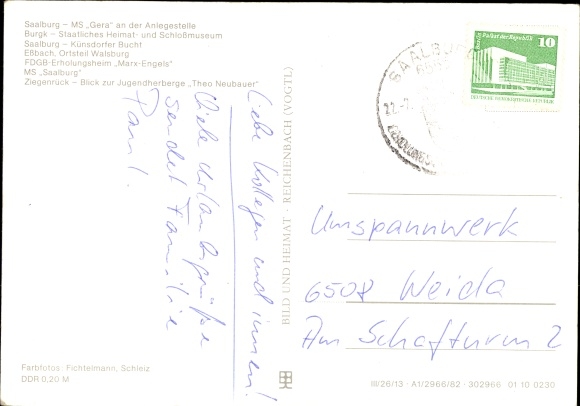 Saalburg – MS „Gera" an der Anlegestelle
Burgk – Staatliches Heimat- und Schloßmuseum
Saalburg – Künsdorfer Bucht
Eßbach, Ortsteil Walsburg
FDGB-Erholungsheim „Marx-Engels"
MS „Saalburg"
Ziegenrück – Blick zur Jugendherberge „Theo Neubauer"
Liebe Kollegen und innen!
Viele Urlaubsgrüße
sendet Familie
Paul.
BILD UND HEIMAT · REICHENBACH (VOGTL)
SAALBURG
22.-7.
Berlin, Palast der Republik
10
DEUTSCHE DEMOKRATISCHE REPUBLIK
Umspannwerk
6508 Weida
Am Schafturm 2
Farbfotos Fichtelmann, Schleiz
DDR 0,20 M
III/26/13 · A1/2966/82 · 302966 01 10 0230